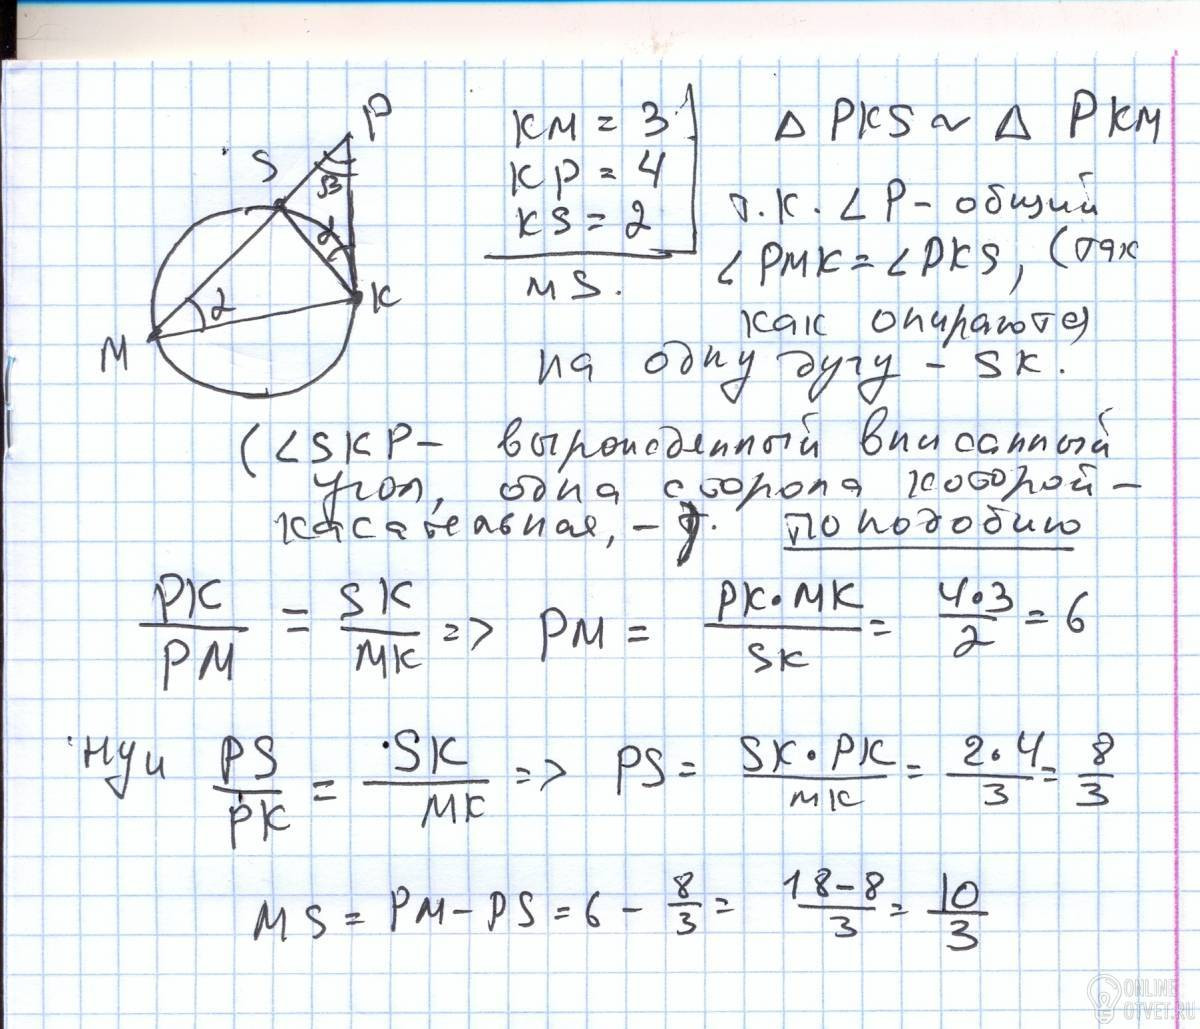 P
S
β
α
K
α
M
KM = 3
KP = 4
KS = 2
MS.
Δ PKS ~ Δ PKM
т.к. ∠P - общий
∠PMK = ∠PKS, (так
как опираются
на одну дугу - SK.
(∠SKP - вырожденный вписанный
угол, одна сторона которой -
касательная, -
по подобию
PK/PM = SK/MK => PM = PK·MK/SK = 4·3/2 = 6
Ну и PS/PK = SK/MK => PS = SK·PK/MK = 2·4/3 = 8/3
MS = PM - PS = 6 - 8/3 = 18-8/3 = 10/3
ONLINE
OTVET.RU